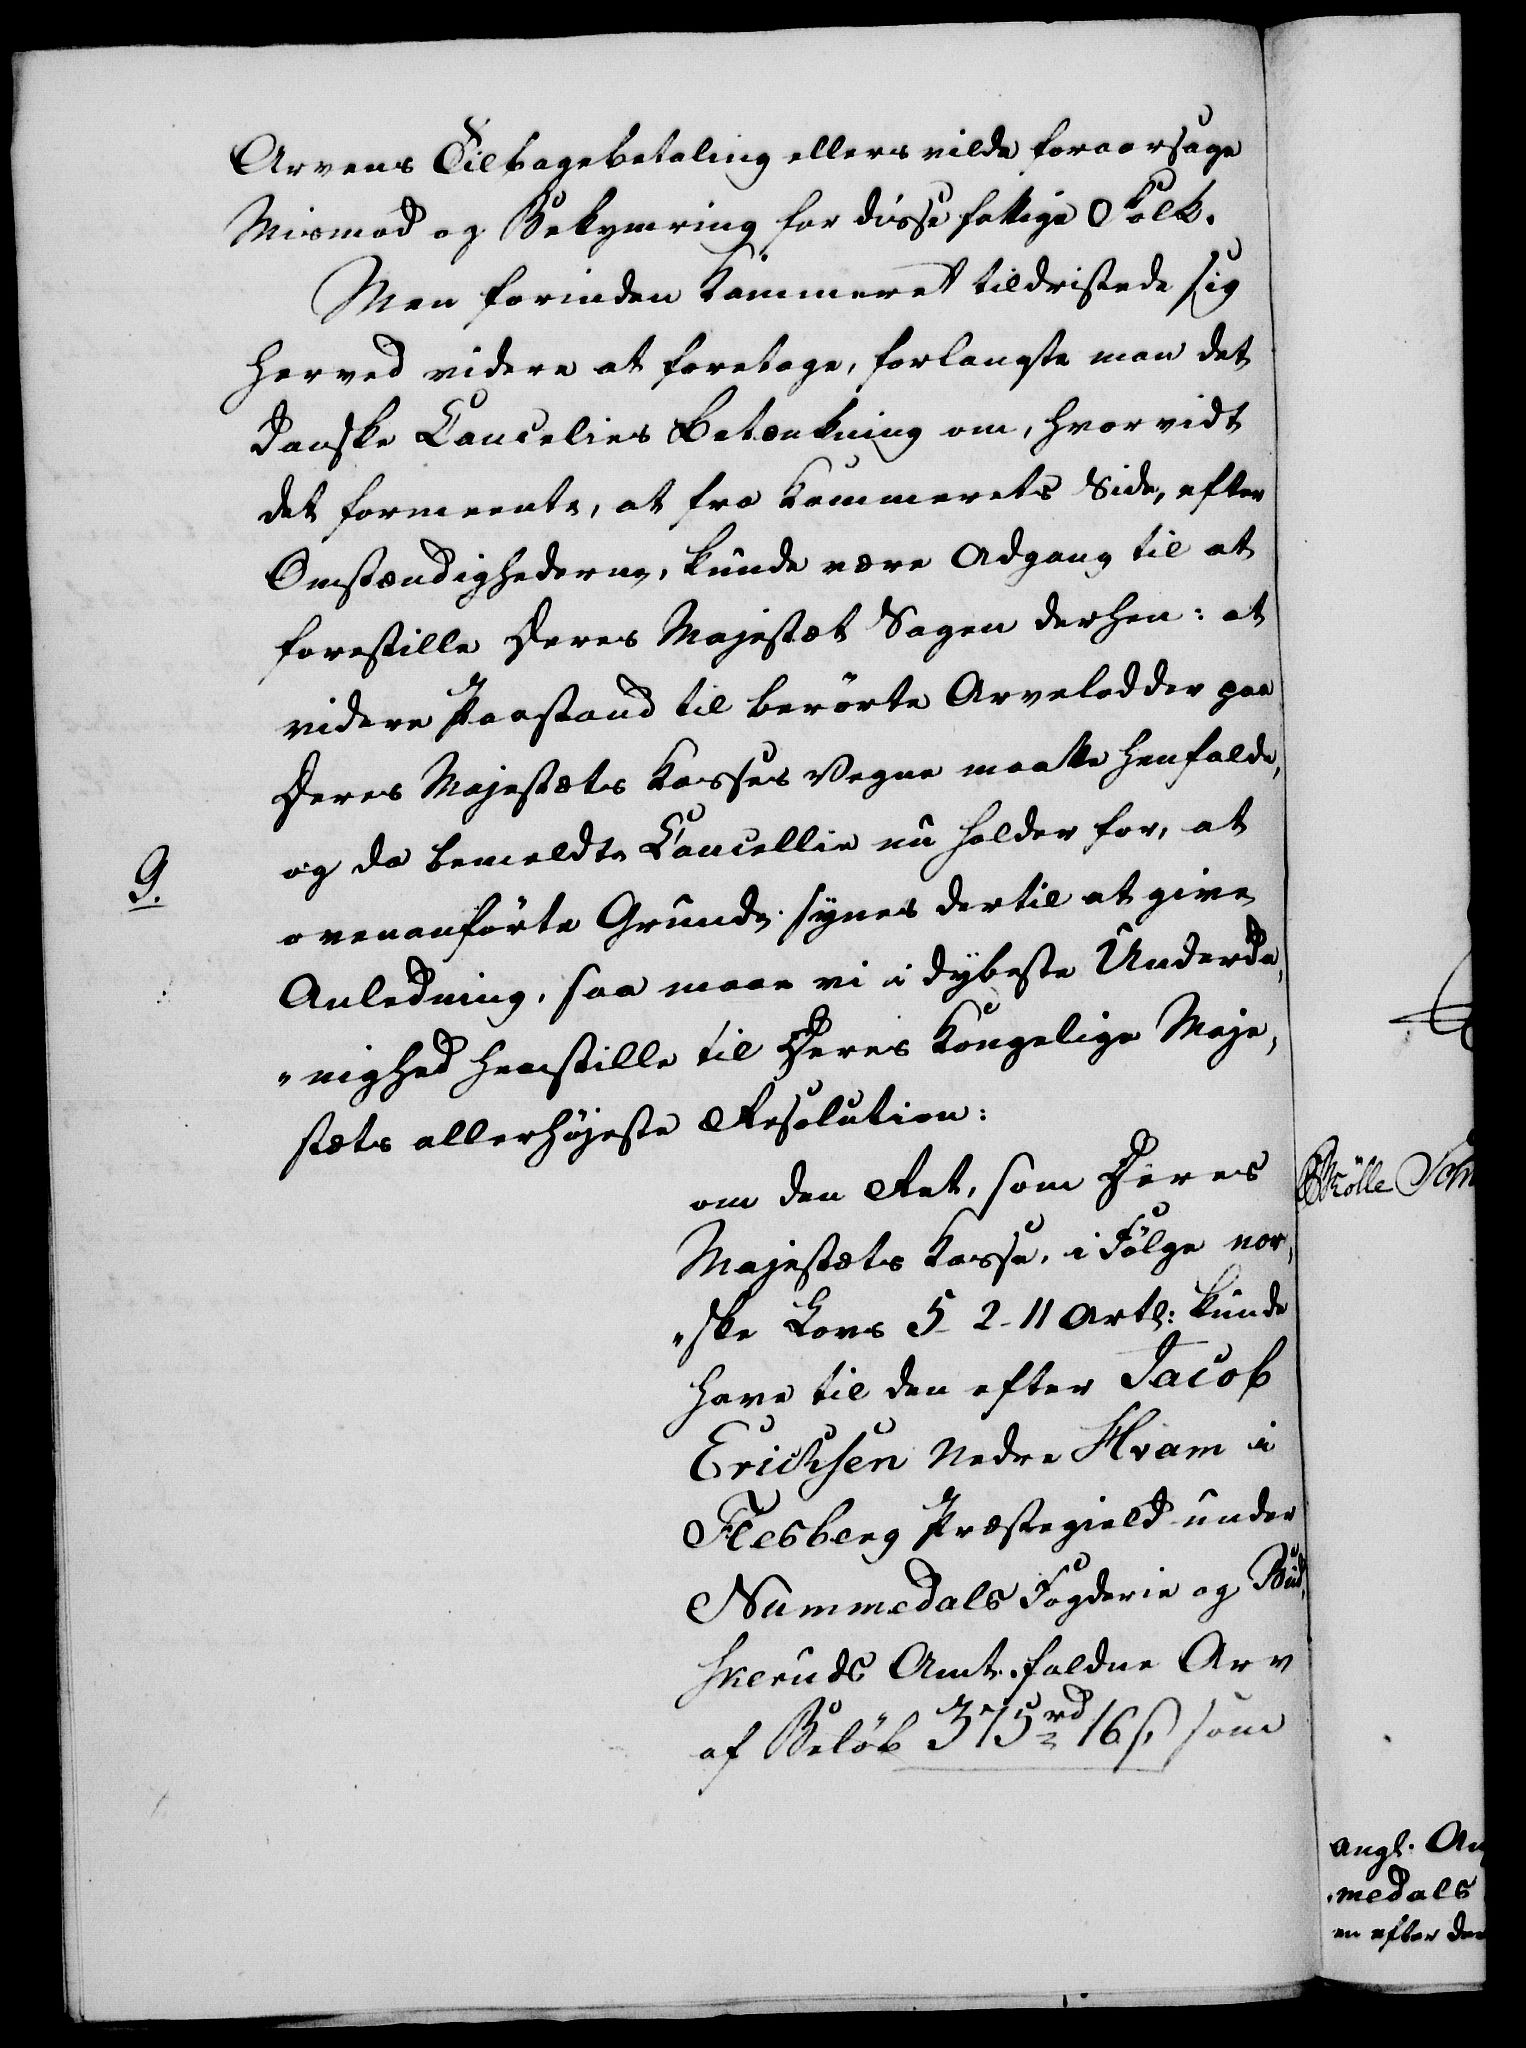 Arvens Tilbagebetaling ellers vilde foraarsage
Mismod og Bekymring for disse fattige Folk.
Men forinden Kammeret tildristede sig
herved videre at foretage, forlangte man det
danske Cancelies Betænkning om, hvorvidt
det formeente, at fra Kammerets Side, efter
Omstændighederne, kunde være Adgang til at
forestille Deres Majestæt Sagen derhen: at
videre Paastand til berörte Arvelodder paa
Deres Majestæts Kasses Vegne maatte henfalde,
og da bemeldte Cancellie nu holder for, at
9.
ovenanförte Grunde synes dertil at give
Anledning, saa maae vi i dybeste Underda„
„nighed henstille til Deres Kongelige Maje„
stæts allerhöjeste Resolution:
om den Ret, som Deres
Majestæts Kasse, i Fölge nor„
„ske Lovs 5-2-11 Artl: kunde
have til den efter Jacob
Erichsen Nedre Hvam i
Flesberg Præstegield under
Nummedals Fogderie og Bud„
skeruds Amt faldne Arv
af Belöb 375 rd 16 s, som
Skölle
angl. An
„medals
en efter den